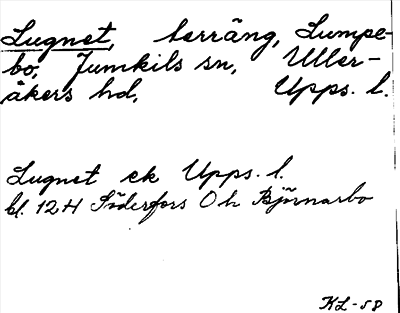 Lugnet, terräng, Lumpe-
bo, Jumkils sn, Uller-
åkers hd, Upps. l.
Lugnet ek Upps. l.
bl. 12H Söderfors Oh Björnarbo
KL-58